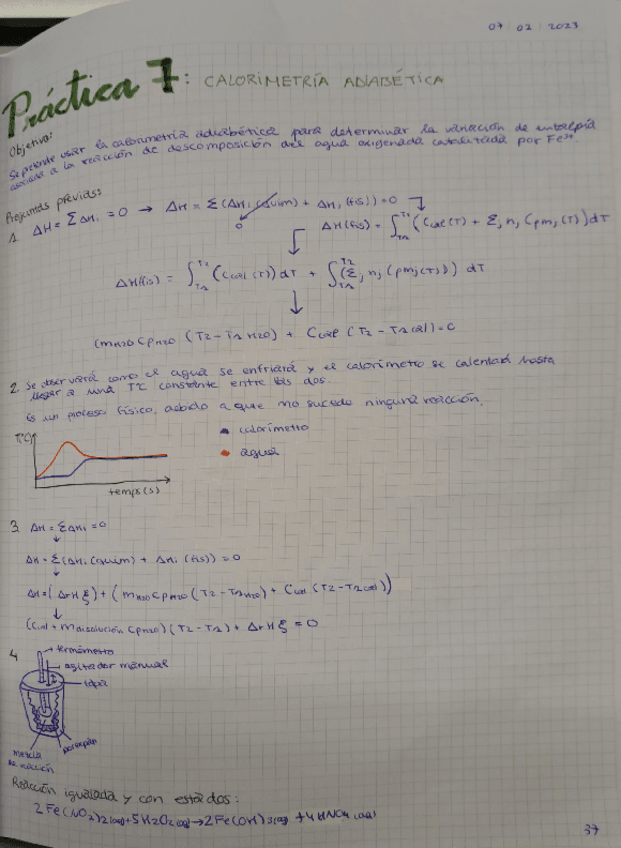 07 02 2023
Práctica 7: CALORIMETRÍA ADIABÉTICA
Objetivo:
Se pretende usar la calorimetría adiabática para determinar la variación de entalpía
asociada a la reacción de descomposición del agua oxigenada catalizada por Fe³⁺.
Preguntas previas:
1. ΔH = ΣΔHi = 0 → ΔH = Σ(ΔHi (quim) + ΔHi (fis)) = 0
0
ΔH(fis) = ∫T1T2 (Ccal(T) + Σj nj Cpmj (T)) dT
ΔH(fis) = ∫T1T2 (Ccal (T)) dT + ∫T1T2 (Σj nj Cpmj(T)) dT
(mH2O CpH2O (T2 - T1 H2O) + Ccal (T2 - T1 cal) = 0
2. Se observará como el agua se enfriará y el calorímetro se calentará hasta
llegar a una Tª constante entre las dos.
Es un proceso físico, debido a que no sucede ninguna reacción.
T(ºC)
calorímetro
agua
temps (s)
3. ΔH = ΣΔHi = 0
ΔH = Σ(ΔHi (quim) + ΔHi (fis)) = 0
ΔH = (ΔrH ξ) + (mH2O CpH2O (T2 - T1H2O) + Ccal (T2 - T1cal))
(Ccal + mdisolución CpH2O) (T2 - T1) + ΔrH ξ = 0
4.
termómetro
agitador manual
tapa
mezcla
de reacción
porexpán
Reacción igualada y con estados:
2 Fe(NO2)2(aq) + 5 H2O2(aq) → 2 Fe(OH)3(aq) + 4 HNO4 (aq)
37